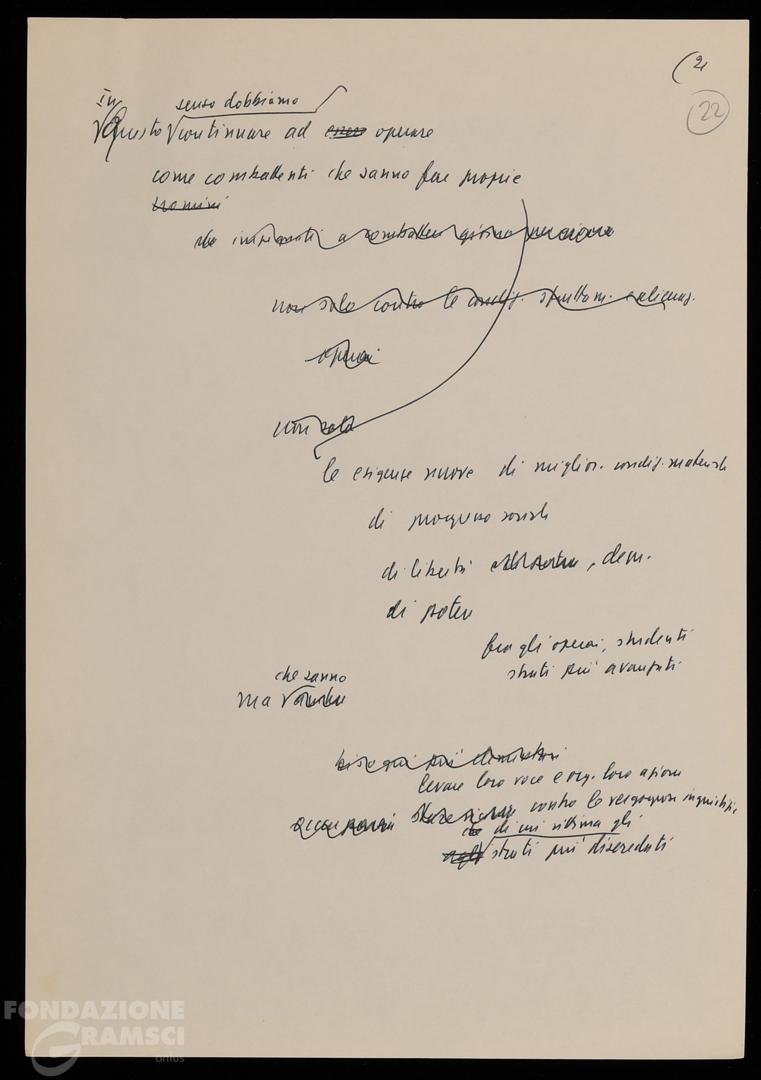 (2
22
in senso dobbiamo
Questo continuare ad essere operare
come combattenti che sanno fare proprie
uomini
che impegnati a combattere giorno per giorno
non solo contro le condiz. sfruttam.
operai
non solo
le esigenze nuove di miglior. condiz. materiali
di progresso sociale
di libertà, dem.
di potere
fra gli operai, studenti
strati più avanzati
che sanno
ma anche
bisogni più elementari
levare loro voce e org. loro azione
contro le vergognose ingiustizie
di cui vittima gli
strati più diseredati
FONDAZIONE
GRAMSCI
onlus